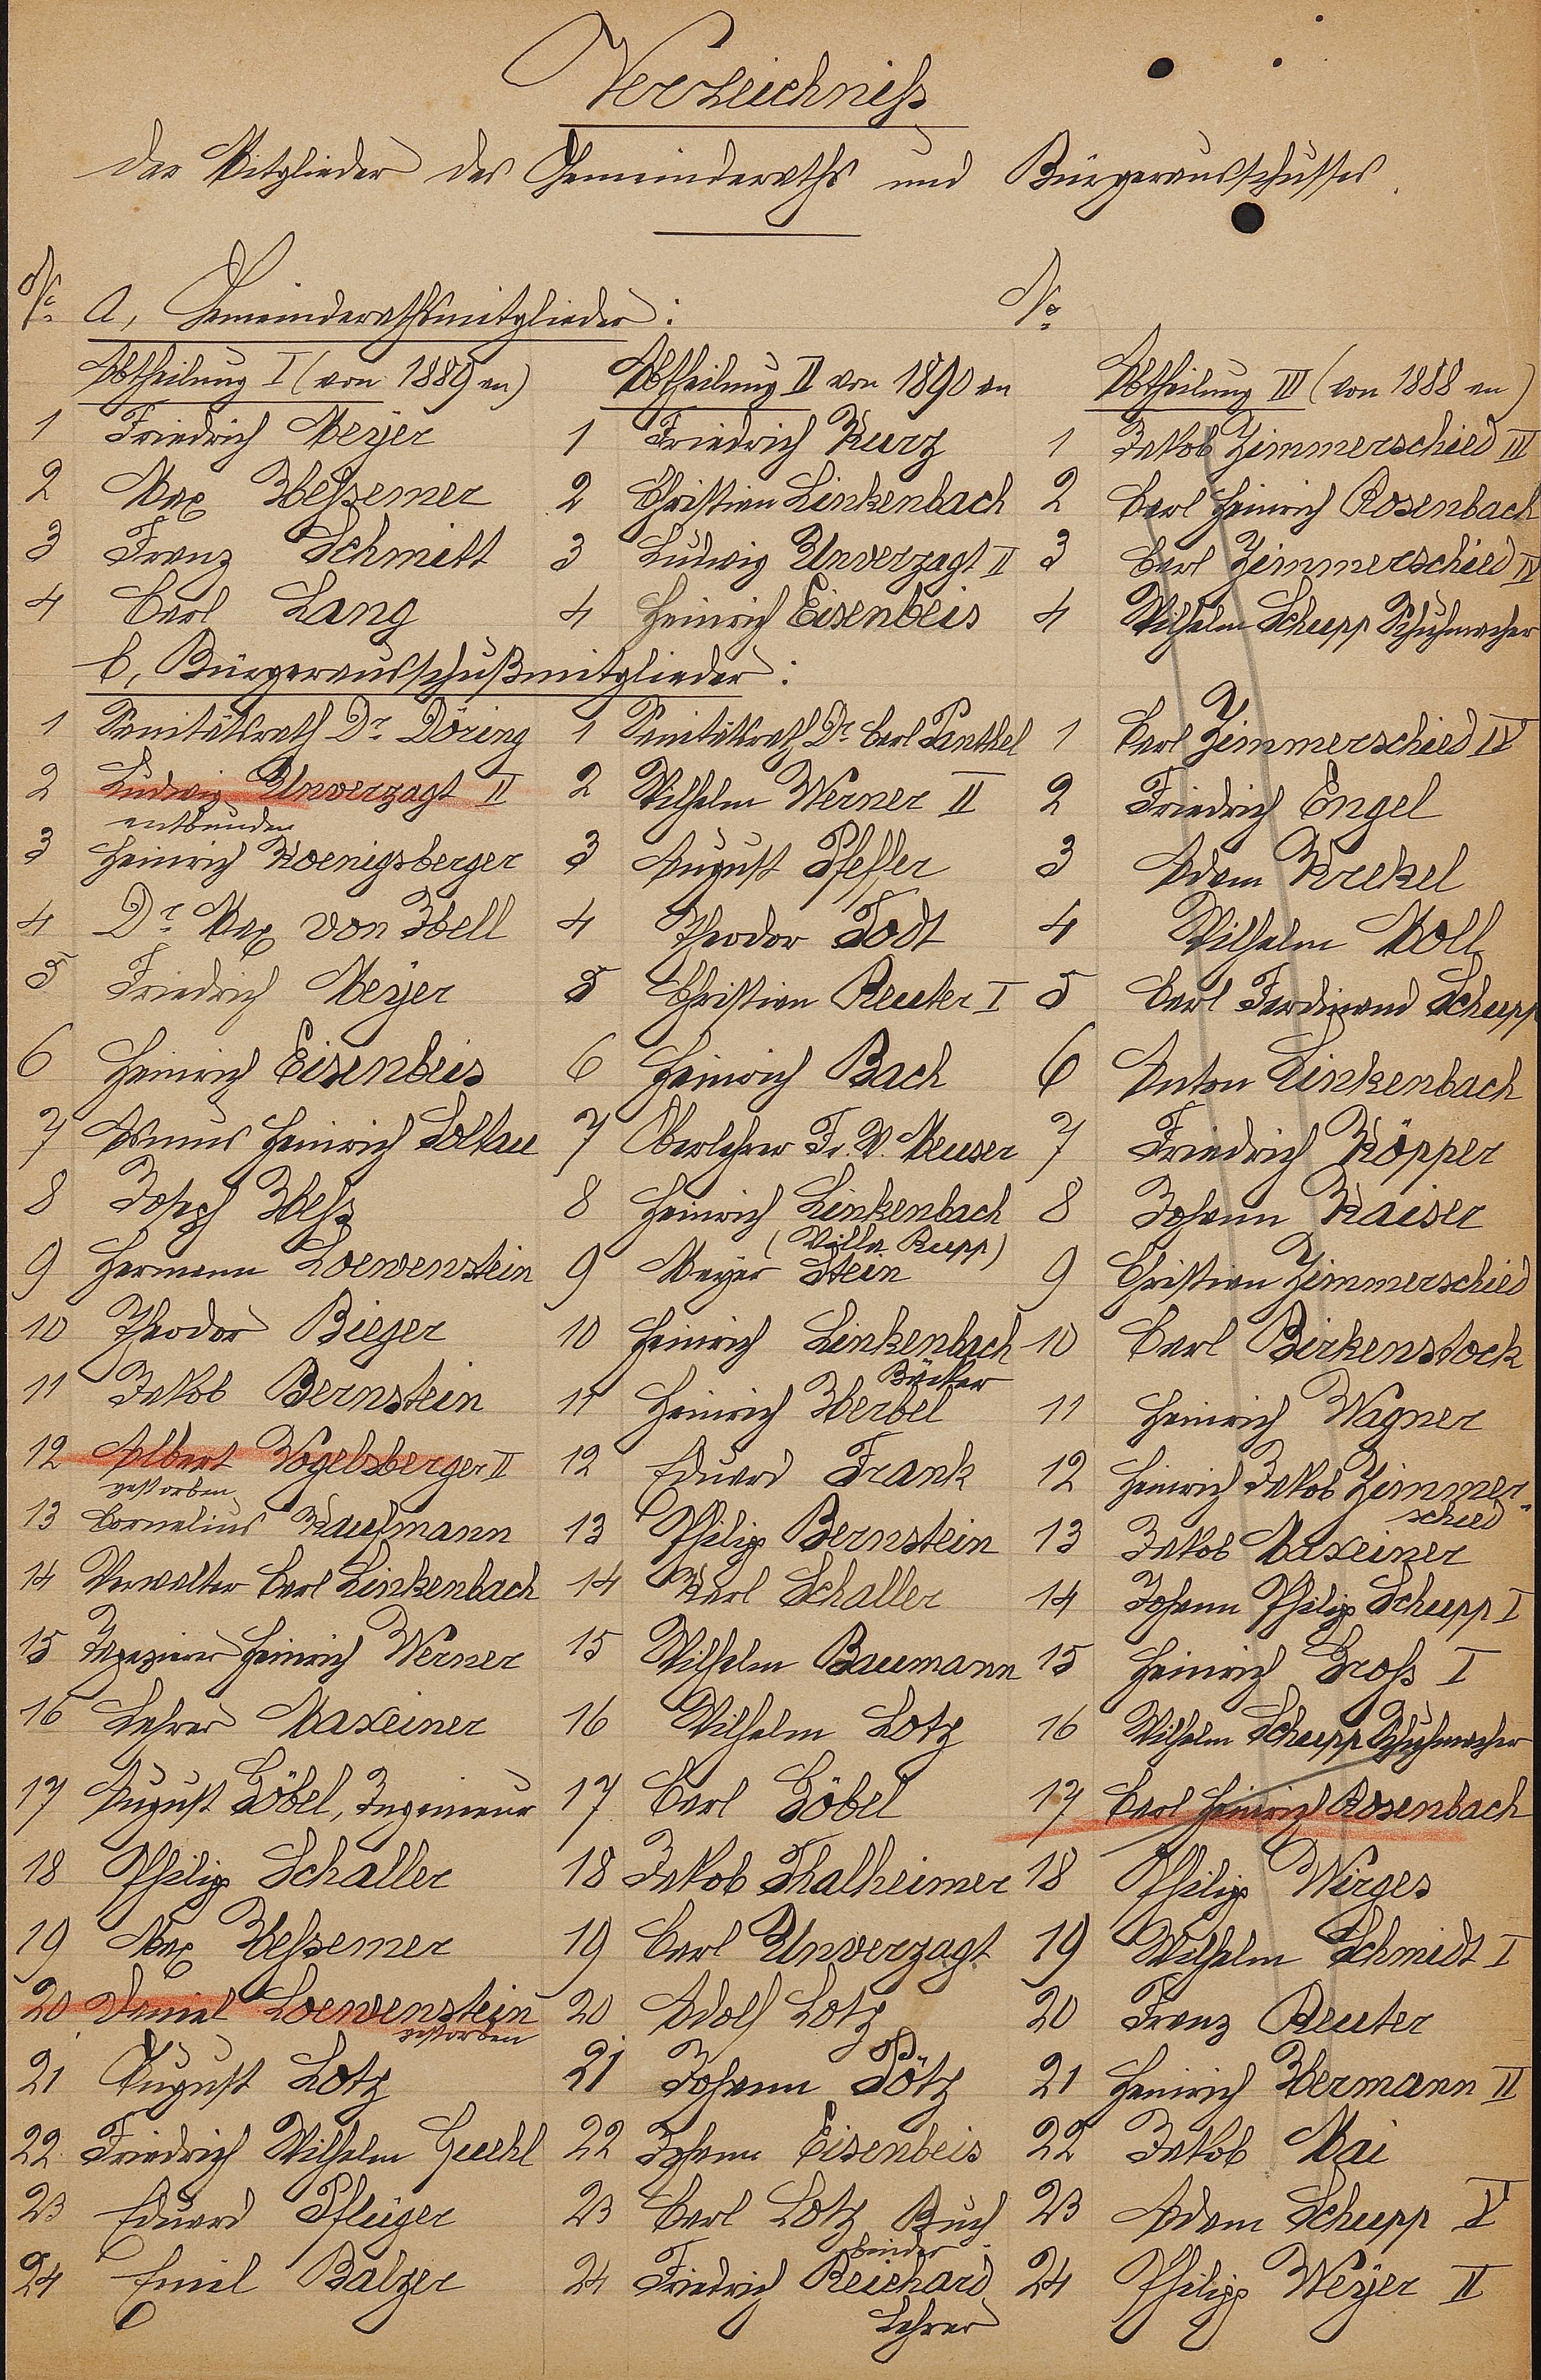 Verzeichniß
der Mitglieder des Gemeinderaths und Bürgerausschusses.
No. a, Gemeinderathsmitglieder: No.
Abtheilung I (von 1889 an) Abtheilung II von 1890 an Abtheilung III (von 1888 an)
1 Friedrich Meyer 1 Friedrich Kurz 1 Jakob Zimmerschied III
2 Max Heßemer 2 Christian Linkenbach 2 Carl Heinrich Rosenbach
3 Franz Schmitt 3 Ludwig Unverzagt II 3 Carl Zimmerschied IV
4 Carl Lang 4 Heinrich Eisenbeis 4 Wilhelm Schupp Schuhmacher
b, Bürgerausschußmitglieder:
1 Sanitätsrath Dr. Döring 1 Sanitätsrath Dr. Carl Panthel 1 Carl Zimmerschied IV
2 Ludwig Unverzagt II 2 Wilhelm Werner II 2 Friedrich Engel
entbunden
3 Heinrich Koenigsberger 3 August Pfeffer 3 Adam Krekel
4 Dr. Max von Ibell 4 Theodor Todt 4 Wilhelm Moll
5 Friedrich Meyer 5 Christian Reuter I 5 Carl Ferdinand Schupp
6 Heinrich Eisenbeis 6 Heinrich Bach 6 Anton Linkenbach
7 Asmus Heinrich Soltau 7 Oberlehrer Fr. W. Meuser 7 Friedrich Köpper
8 Joseph Heß 8 Heinrich Linkenbach 8 Johann Kaiser
(Villa Rupp)
9 Hermann Loewenstein 9 Meyer Stein 9 Christian Zimmerschied
10 Theodor Bieger 10 Heinrich Linkenbach 10 Carl Birkenstock
Bäcker
11 Jakob Bernstein 11 Heinrich Herbel 11 Heinrich Wagner
12 Albert Vogelsberger II 12 Eduard Frank 12 Heinrich Jakob Zimmer-
gestorben schied
13 Cornelius Kaufmann 13 Philipp Bernstein 13 Jakob Maxeiner
14 Verwalter Carl Linkenbach 14 Karl Schaller 14 Johann Philipp Schupp I
15 Tapezierer Heinrich Werner 15 Wilhelm Baumann 15 Heinrich Groß I
16 Lehrer Maxeiner 16 Wilhelm Lotz 16 Wilhelm Schupp Schuhmacher
17 August Göbel, Ingenieur 17 Carl Göbel 17 Carl Heinrich Rosenbach
18 Philipp Schaller 18 Jakob Thalheimer 18 Philipp Wirges
19 Max Heßemer 19 Carl Unverzagt 19 Wilhelm Schmidt I
20 Daniel Loewenstein 20 Adolf Lotz 20 Franz Reuter
gestorben
21 August Lotz 21 Johann Pötz 21 Heinrich Hermann II
22 Friedrich Wilhelm 22 Johann Eisenbeis 22 Jakob Mai
23 Eduard Pflüger 23 Carl Lotz Buch- 23 Adam Schupp V
binder
24 Emil Balzer 24 Friedrich Reichard 24 Philipp Weyer II
Lehrer